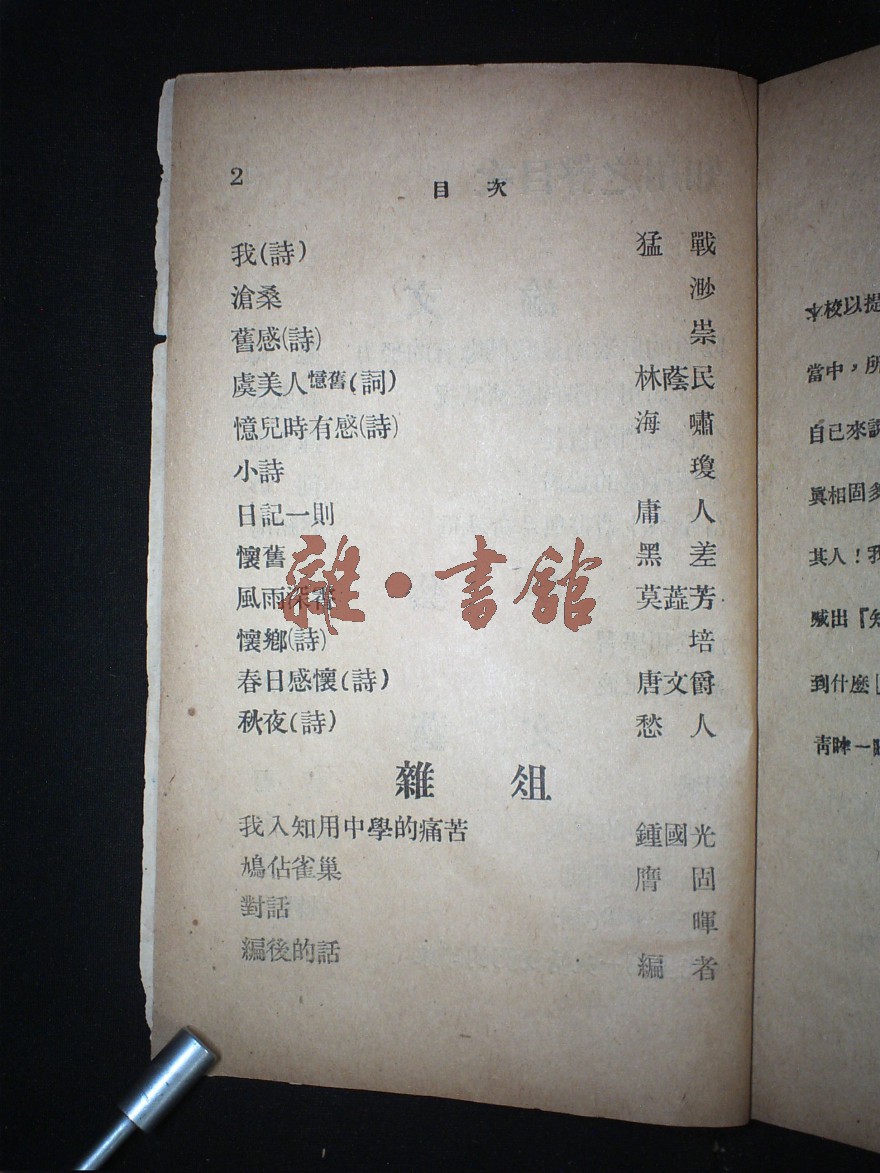 2
目 次
我(詩) 猛 戰
滄桑 渺
舊感(詩) 祟
虞美人憶舊(詞) 林蔭民
憶兒時有感(詩) 海 嘯
小詩 瓊
日記一則 庸 人
懷舊 黑 差
風雨深宵 莫蕋芳
懷鄉(詩) 培
春日感懷(詩) 唐文爵
秋夜(詩) 愁 人
雜 俎
我入知用中學的痛苦 鍾國光
鳩佔雀巢 膺 固
對話 暉
編後的話 編 者
雜·書館
校以提
當中，所
自己來
眞相固多
其人！我
喊出『
到什麽
靑睞一